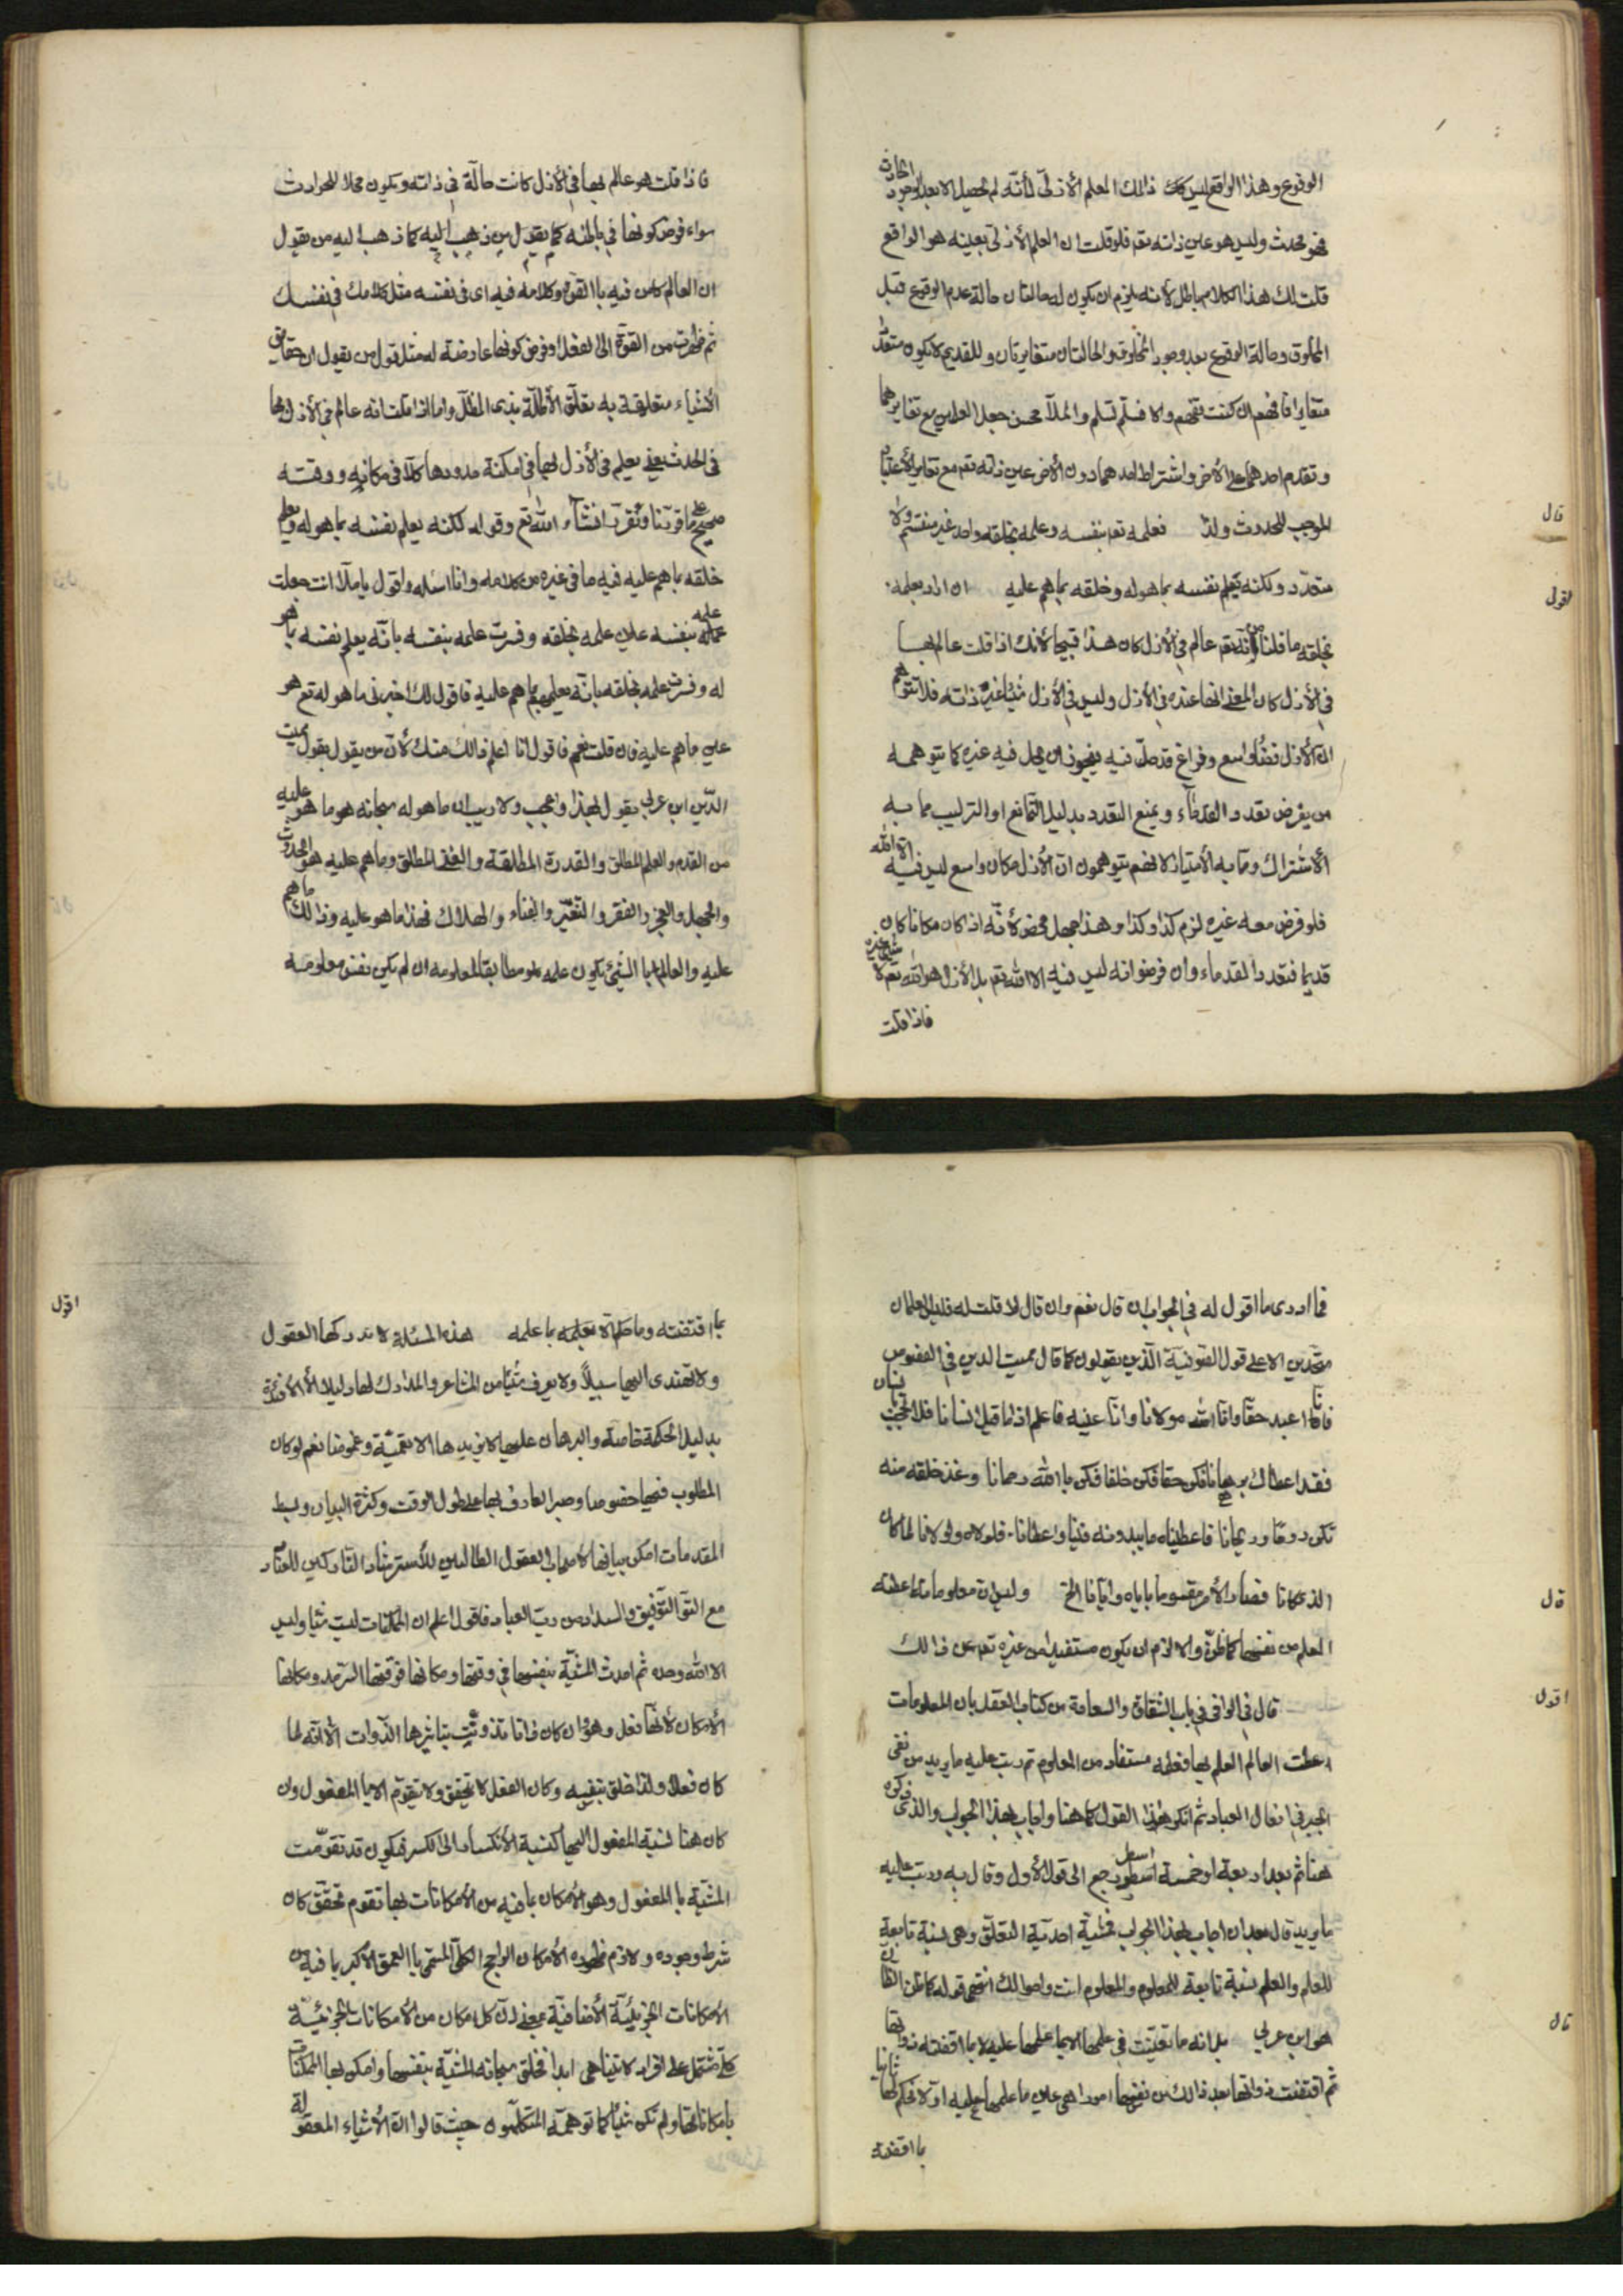 الوقوع وهذا الواقع ليس كك ذالك العلم الأزلى لأنّه لم يحصل الا بعد الوجود الحادث
فهو محدث وليس هو عين ذاته تعم فلو قلت ان العلم الأزلى بعينه هو الواقع
قلت لك هذا الكلام باطل لأنه يلزم ان يكون له حالتان حالة عدم الوقوع قبل
المخلوق وحالة الوقوع بعد وجود المخلوق والحالتان متغايرتان وللقديم لا يكون متعدّدا
متغايرا فافهم ان كنت تفهم والا فسلّم تسلم والملّا محسن جعل العلمين مع تغايرهما
وتقدم احدهما على الأخر واشتراط احدهما دون الأخر عين ذاته تعم مع تغاير الأعتبار
قال
الموجب للحدوث ولذا فعلمه تعم بنفسه وعلمه بخلقه واحد غير منقسم ولا
اقول
متعدّد ولكنه يعلم نفسه بما هو له وخلقه بما هم عليه ان اراد بعلمه
بخلقه ما قلنا من أنّه تعم عالم فى الأزل كان هذا قبيحا لأنك اذا قلت عالم بها
فى الأزل كان المعنى انها عنده فى الأزل وليس فى الأزل شيئا غير ذاته فلا تتوهم
انّ الأزل فضاء واسع وفراغ قد حلّ فيه فيجوز ان يحل فيه غيره كما يتوهمه
من يفرض تعدد القدماء ويمنع التعدد بدليل التمانع او التركيب مما به
الأشتراك وما به الأمتياز لانهم يتوهمون انّ الأزل مكان واسع ليس فيه الا الله
فلو فرض معه غيره لزم كذا وكذا وهذا جهل محض لأنّه اذا كان مكانا كان
قديما فتعدد القدماء وان فرضوا انه ليس فيه الا الله تعم بل الأزل هو الله تعم لا شئ غيره
فاذا قلت
فاذا قلت هو عالم بها فى الأزل كانت حالّة فى ذاته ويكون محلا للحوادث
سواء فرض كونها فى باطنه كما يقول من ذهب اليه كما ذهب اليه من يقول
ان العالم كامن فيه با القوة وكلامه فيه اى فى نفسه مثل كلامك فى نفسك
ثم ظهرت من القوّة الى الفعل او فرض كونها عارضة له مثل قول من يقول ان حقايق
الأشياء متعلقة به تعلّق الأظلّة بذى الظلّ واما اذا قلت انه عالم فى الأزل بها
فى الحدث يعنى يعلم فى الأزل بها فى امكنة حدودها كلّا فى مكانه ووقته
صحيح على ما قررنا ونقرّر انشاء الله تعم وقوله لكنه يعلم نفسه بما هو له ويعلم
خلقه بما هم عليه فيه ما فى غيره من كلامه وانا اسئله واقول يا ملّا انت جعلت
علمه بنفسه عين علمه بخلقه وفسرت علمه بنفسه بانّه يعلم نفسه بما هو
له وفسرت علمه بخلقه بانّه يعلمهم بما هم عليه فاقول لك اخبرنى ما هو له تع هو
عين ما هم عليه فان قلت نعم فاقول انا اعلم ذالك منك لأنّ من يقول بقول مميت
الدّين ابن عربى يقول بهذا واعجب ولا ريب ان ما هو له سبحانه هو ما هو عليه
من القدم والعلم المطلق والقدرة المطلقة والغنى المطلق وما هم عليه هو الحدوث
والجهل والعجز والفقر والتغيّر والفناء والهلاك فهذا ما هو عليه وذالك ما هم
عليه والعالم با الشئ يكون علمه مطابقا لمعلومه ان لم يكن نفس معلومه
فما ادرى ما اقول له فى الجواب ان قال نعم وان قال لا قلت له فليس العلمان
متحدين الا على قول الصوفية الّذين يقولون كما قال مميت الدين فى الفصوص
فانا اعبد حقا وانا الله مولانا وانّا عينه فاعلم اذا ما قيل انسانا فلا تحجب بانسان
فقد اعطاك برهانا فكن حقا فكن خلقا فكن با الله رحمانا وغذ خلقه منه
تكن روحا وريحانا فاعطيناه ما يبدو به فينا واعطانا فلولاه ولولانا لما كان
قال
الذى كانا فصار الأمر مقسوما باياه وايانا الخ وليس ان معلوماته اعطته
العلم من نفسها كما ظنّ والا لزم ان يكون مستفيدا من غيره تعم عن ذالك
اقول
قال فى الوافى فى باب الشقاوة والسعادة من كتاب العقل بان المعلومات
اعطت العالم العلم بها فعلمه مستفاد من المعلوم ثم رتب عليه ما يريد من نفى
الجبر فى افعال العباد ثم انكر هذا القول كما هنا واجاب بهذا الجواب والذى ذكره
هنا ثم بعد اربعة او خمسة اسطر رجع الى قوله الأول وقال به ورتب عليه
ما يريد قال بعد ان اجاب بهذا الجواب فمشيّته احديّة التعلّق وهى نسبة تابعة
للعلم والعلم نسبة تابعة للمعلوم والمعلوم انت واحوالك انتهى قوله كما ظن الظان
قال
هو ابن عربى بل انه ما تعيّنت فى علمها الا بما علمها عليه لا بما اقتضته ذواتها
ثم اقتضت ذواتها بعد ذالك من نفسها امورا هى عين ما علمها عليه اولا فحكم لها ثانيا
بما اقتضته
اقول
بما اقتضته وما حكم الا بعلمه بما علمه هذه المسئلة لا تدركها العقول
ولا تهتدى اليها سبيلا ولا يعرف شيئا من المشاعر والمدارك لها دليلا الا الأفئدة
بدليل الحكمة خاصة والبرهان عليها لا يزيدها الا تعمية وغموضا نعم لو كان
المطلوب فيها خصوصا وصبر العارف بها على طول الوقت وكثرة البيان وبسط
المقدمات امكن بيانها لأصحاب العقول الطالبين للأسترشاد التاركين للعناد
مع التوفيق والسداد من ربّ العباد فاقول اعلم ان الممكنات ليست شيئا وليس
الا الله وحده ثم احدث المشيّة بنفسها فى وقتها ومكانها فوقتها السّرمد ومكانها
الأمكان لأنّها فعل وهو وان كان ذاتا تذوّتت بتاثيرها الذّوات الا انّه لما
كان فعلا ولذا خلق بنفسه وكان الفعل لا يتحقق ولا يتقوّم الا با المفعول وان
كان هنا نسبة المفعول اليها كنسبة الأنكسار الى الكسر فيكون قد تقوّمت
المشيّة با المفعول وهو الأمكان بما فيه من الأمكانات بها تقوم تحقّق كان
شرط وجوده ولازم ظهوره الأمكان الراجح الكلّى المسمى با العمق الأكبر بما فيه من
الأمكانات الجزئيّة الأضافيّة بمعنى ان كل مكان من الأمكانات الجزئيّة
كلّى يشتمل على افراد لا تتناهى ابدا فخلق سبحانه المشيّة بنفسها وامكن بها الممكنات
بامكاناتها ولم تكن شيئا كما توهمّه المتكلّمون حيث قالوا انّ الأشياء المعقولة